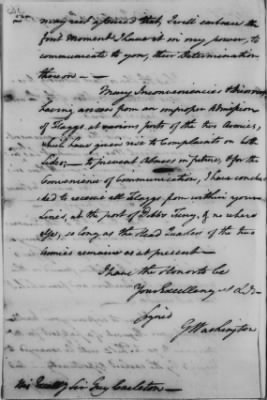 may rest assured that, I will embrace the
first moment I have it in my power, to
communicate to you, their Determination
thereon. —
Many Inconveniencies &
having arisen from an improper Admission
of Flaggs at various posts of the two Armies,
which have given rise to Complaints on both
Sides; — to prevent Abuses in future, & for the
Convenience of Communication, I have conclu-
ded to receive all Flaggs from within your
Lines, at the post of Dobbs's Ferry, & no where
else, so long as the Head Quarters of the two
Armies remain as at present —
I have the Honor to be
Your Excellency's
Signed
G Washington
His Excelly Sir Guy Carleton —